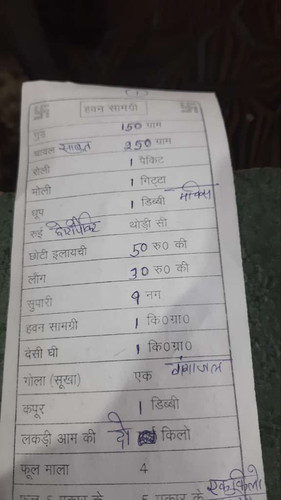 हवन सामग्री
गुड़ 150 ग्राम
चावल साबुत 250 ग्राम
रोली 1 पैकिट
मोली 1 गिट्टा
धूप 1 डिब्बी माचिस
रुई थोड़ी सी
छोटी इलायची 50 रु० की
लौंग 30 रु० की
सुपारी 9 नग
हवन सामग्री 1 कि०ग्रा०
देसी घी 1 कि०ग्रा०
गोला (सूखा) एक गंगाजल
कपूर 1 डिब्बी
लकड़ी आम की दो किलो
फूल माला 4
फल 5 प्रकार के 5 प्रकार के एक किलो